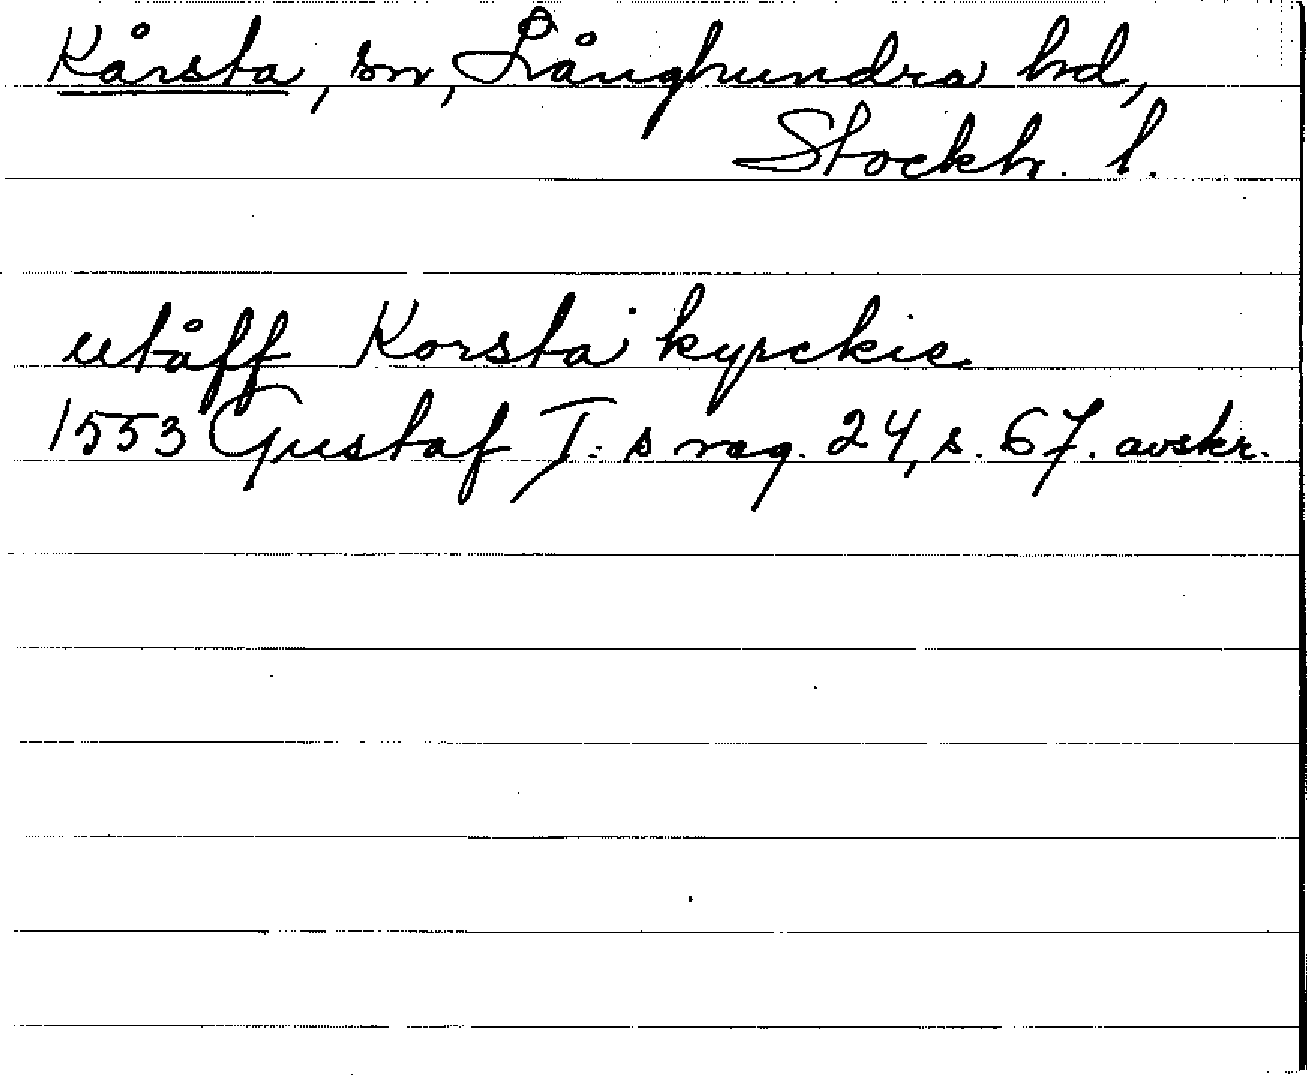 Kårsta, sn, Långhundra hd,
Stockh. l.
utåff Korsta kyrckie
1553 Gustaf I:s reg. 24, s. 67. avskr.